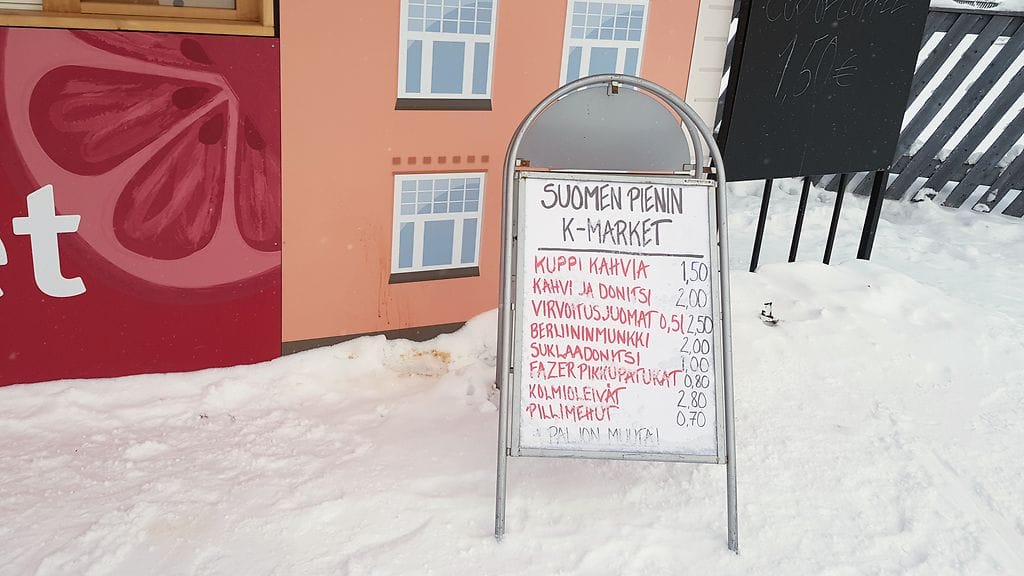 et
1,50€
SUOMEN PIENIN
K-MARKET
KUPPI KAHVIA 1,50
KAHVI JA DONITSI 2,00
VIRVOITUSJUOMAT 0,5l 2,50
BERLIININMUNKKI 2,00
SUKLAADONITSI 1,00
FAZER PIKKUPATUKAT 0,80
KOLMIOLEIVÄT 2,80
PILLIMEHUT 0,70
+ PALJON MUUTA!